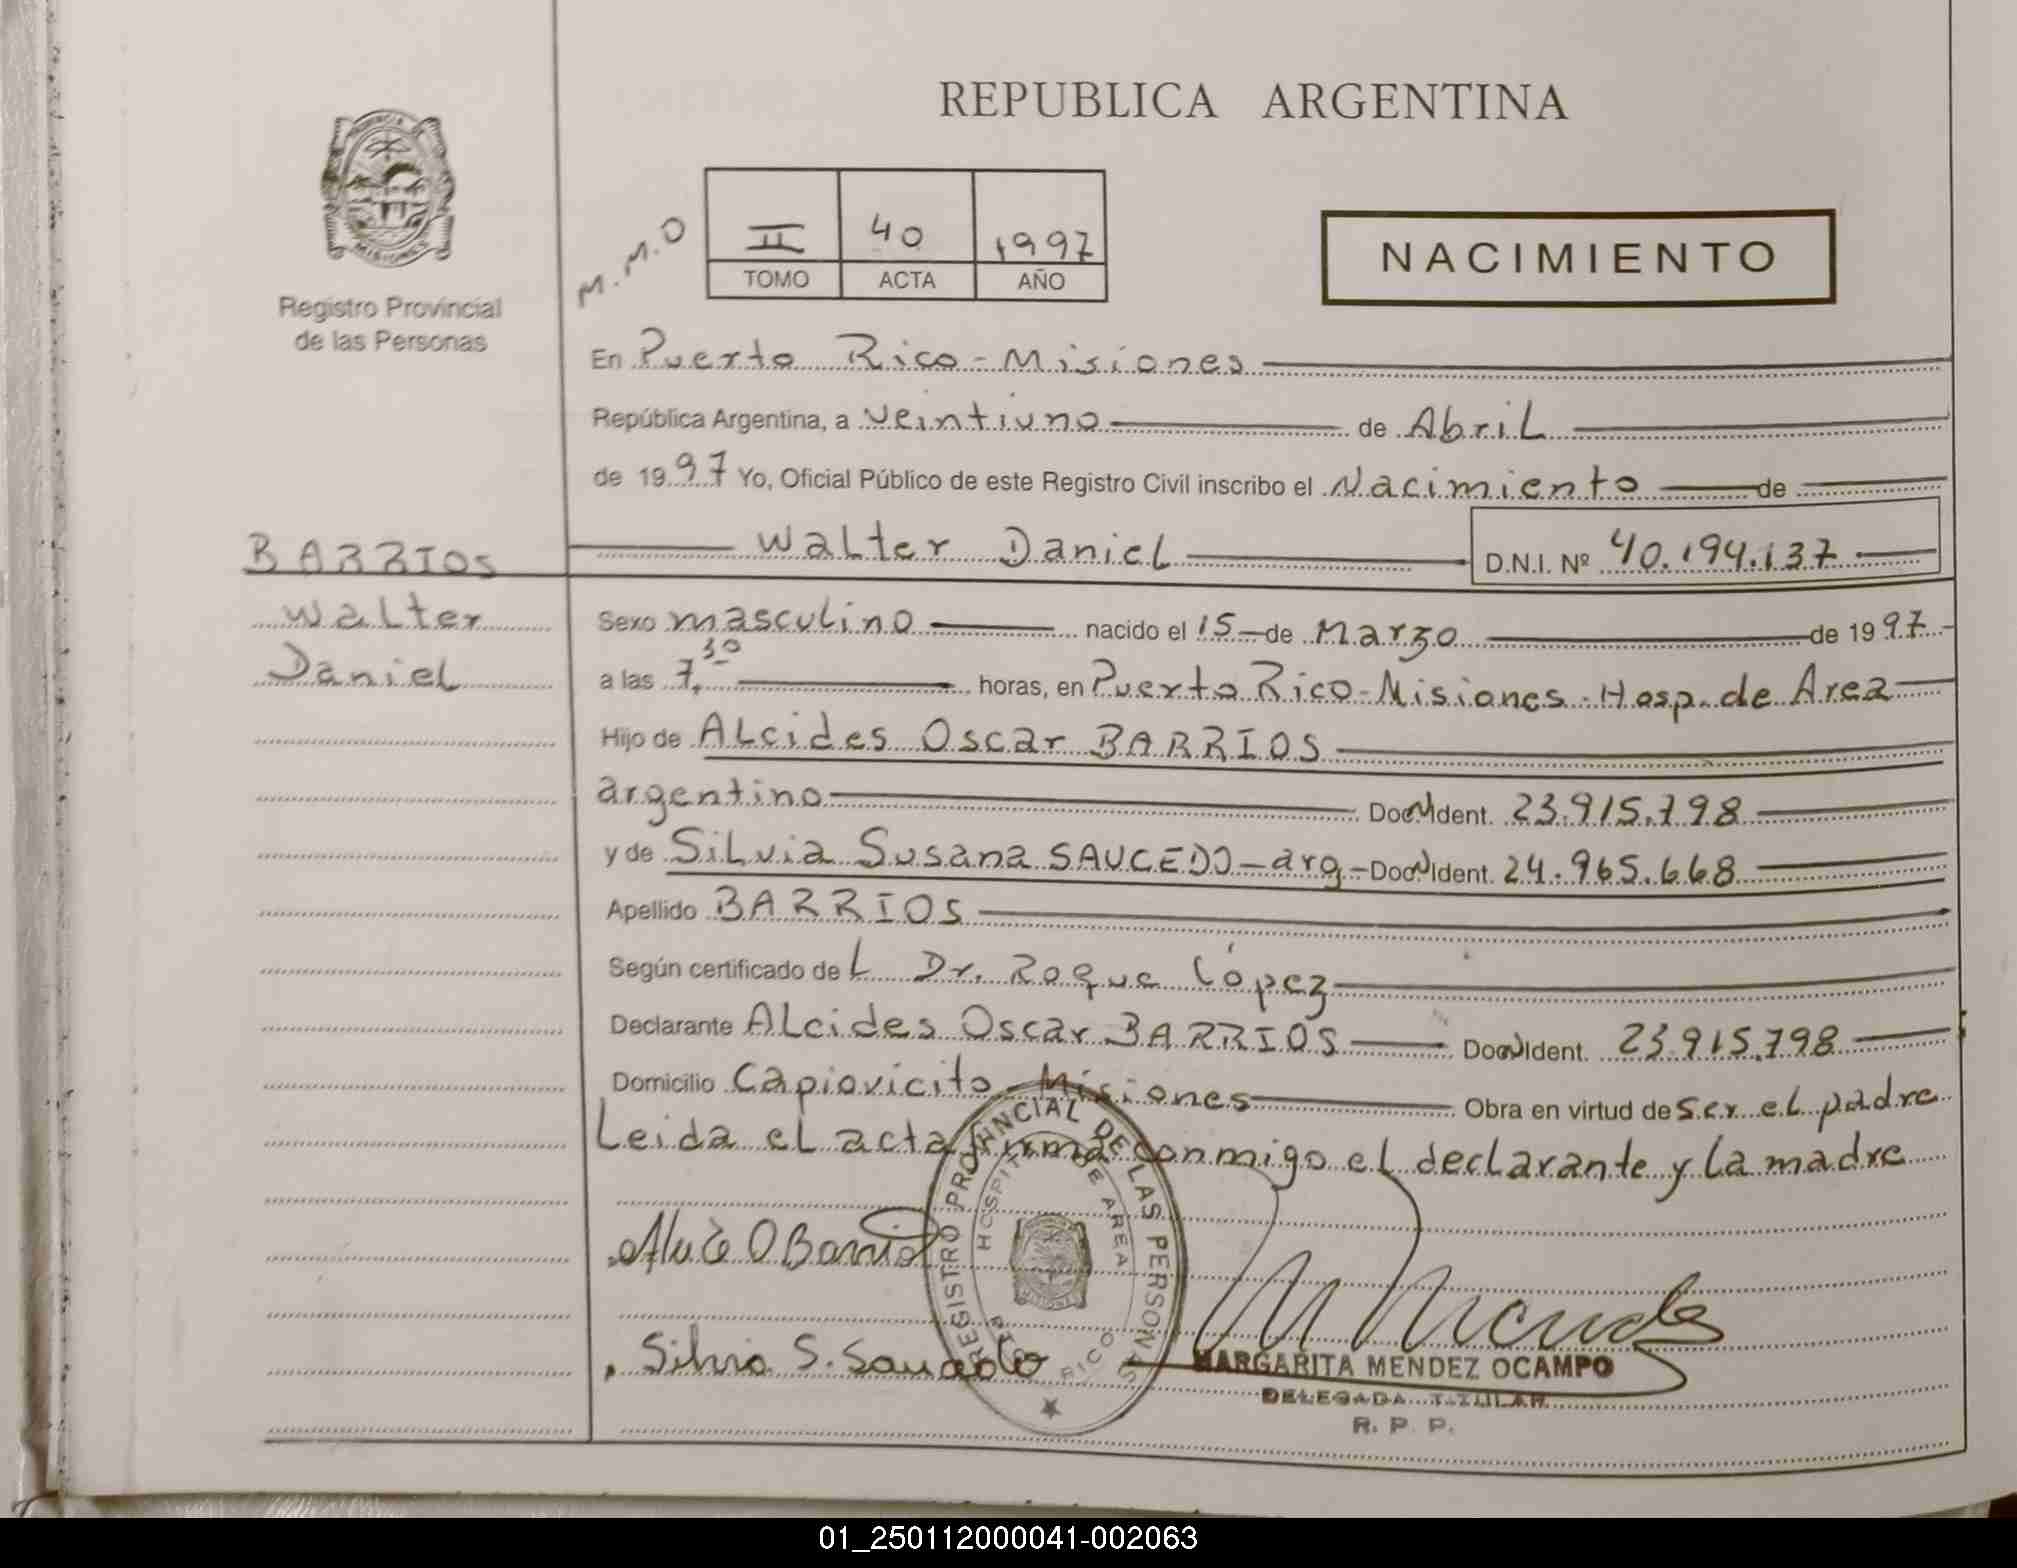 REPUBLICA ARGENTINA
PROVINCIA DE MISIONES
Registro Provincial
de las Personas
M.M.O
II 40 1997
TOMO ACTA AÑO
NACIMIENTO
En Puerto Rico - Misiones
República Argentina, a veintiuno de Abril
de 1997 Yo, Oficial Público de este Registro Civil inscribo el Nacimiento de
BARRIOS
Walter Daniel D.N.I. Nº 40.194.137
Walter
Daniel
Sexo masculino nacido el 15 de Marzo de 1997
a las 7,30 horas, en Puerto Rico - Misiones - Hosp. de Area
Hijo de Alcides Oscar BARRIOS
argentino Doc N Ident. 23.915.798
y de Silvia Susana SAUCEDO - arg - Doc N Ident. 24.965.668
Apellido BARRIOS
Según certificado del Dr. Roque López
Declarante Alcides Oscar BARRIOS Doc N Ident. 23.915.798
Domicilio Capiovicito - Misiones Obra en virtud de ser el padre
Leida el acta firma conmigo el declarante y la madre
REGISTRO PROVINCIAL DE LAS PERSONAS
HOSPITAL DE AREA
PTO RICO
Silvia S. Saucedo
MARGARITA MENDEZ OCAMPO
DELEGADA TITULAR
R. P. P.
01_250112000041-002063